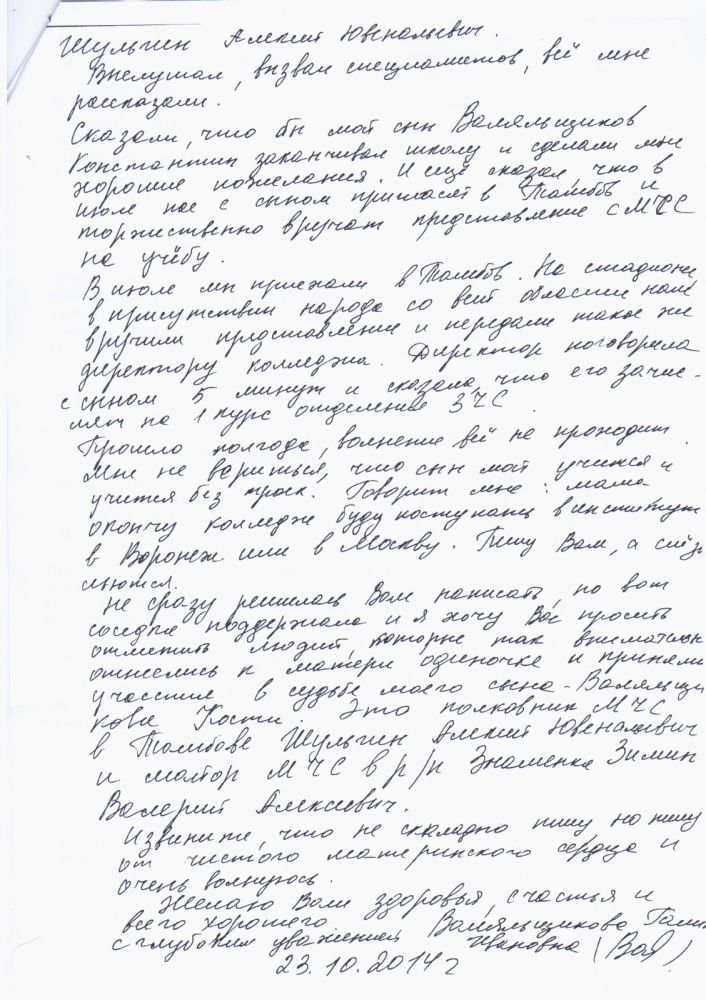 Шульгин Алексей Ювенальевич.
Выслушал, вызвал специалистов, всё мне
рассказали.
Сказали, что бы мой сын Валяльщиков
Константин заканчивал школу и сделали мне
хорошие пожелания. И ещё сказал, что в
июле нас с сыном пригласят в Тамбов и
торжественно вручат представление с МЧС
на учёбу.
В июле мы приехали в Тамбов. На стадионе
в присутствии народа со всей области нам
вручили представление и передали также же
директору колледжа. Директор поговорила
с сыном 5 минут и сказала, что его зачис-
лят на 1 курс отделение ЗЧС.
Прошло полгода, волнение всё не проходит.
Мне не вериться, что сын мой учится и
учится без троек. Говорит мне: мама
окончу колледж буду поступать в институт
в Воронеж или в Москву. Пишу Вам, а слёзы
льются.
Не сразу решилась Вам написать, но вот
соседка поддержала и я хочу Вас просить
отметить людей, которые так внимательн
отнеслись к матери одиночке и приняли
участие в судьбе моего сына - Валяльщи
кова Кости. Это полковник МЧС
в Тамбове Шульгин Алексей Ювенальевич
и майор МЧС в р/п Знаменка Зимин
Валерий Алексеевич.
Извините, что не складно пишу, но пишу
от чистого материнского сердца и
очень волнуюсь.
Желаю Вам здоровья, счастья и
всего хорошего.
С глубоким уважением Валяльщикова Галин
Ивановна (Вал)
23.10.2014 г